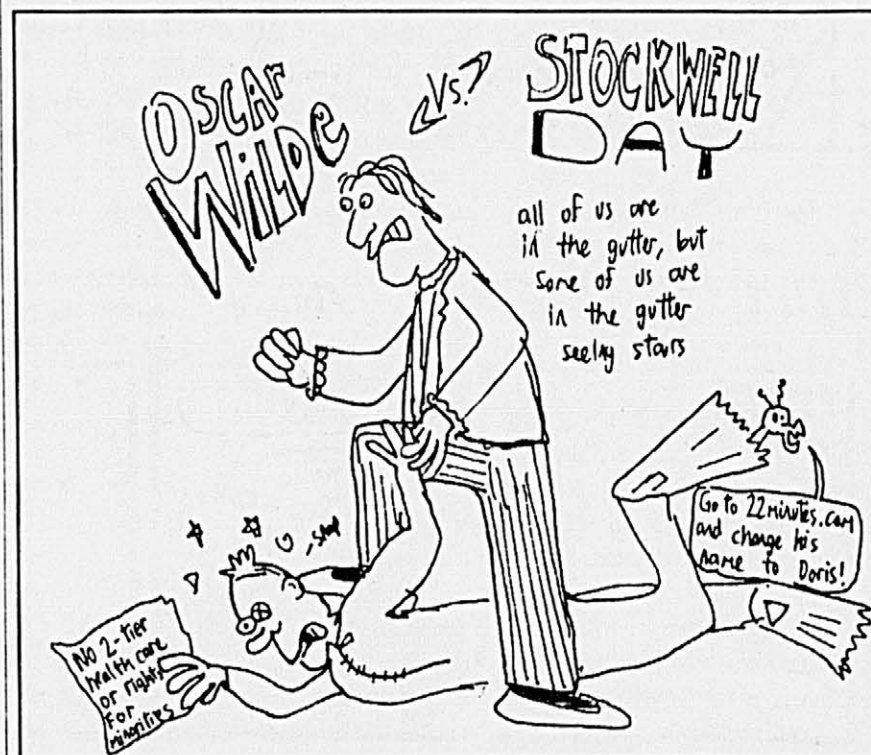 OSCAR
WILDE
VS.
STOCKWELL
DAY
all of us are
in the gutter, but
some of us are
in the gutter
seeing stars
Go to 22minutes.com
and change his
name to Doris!
No 2-tier
health care
or rights
for
minorities